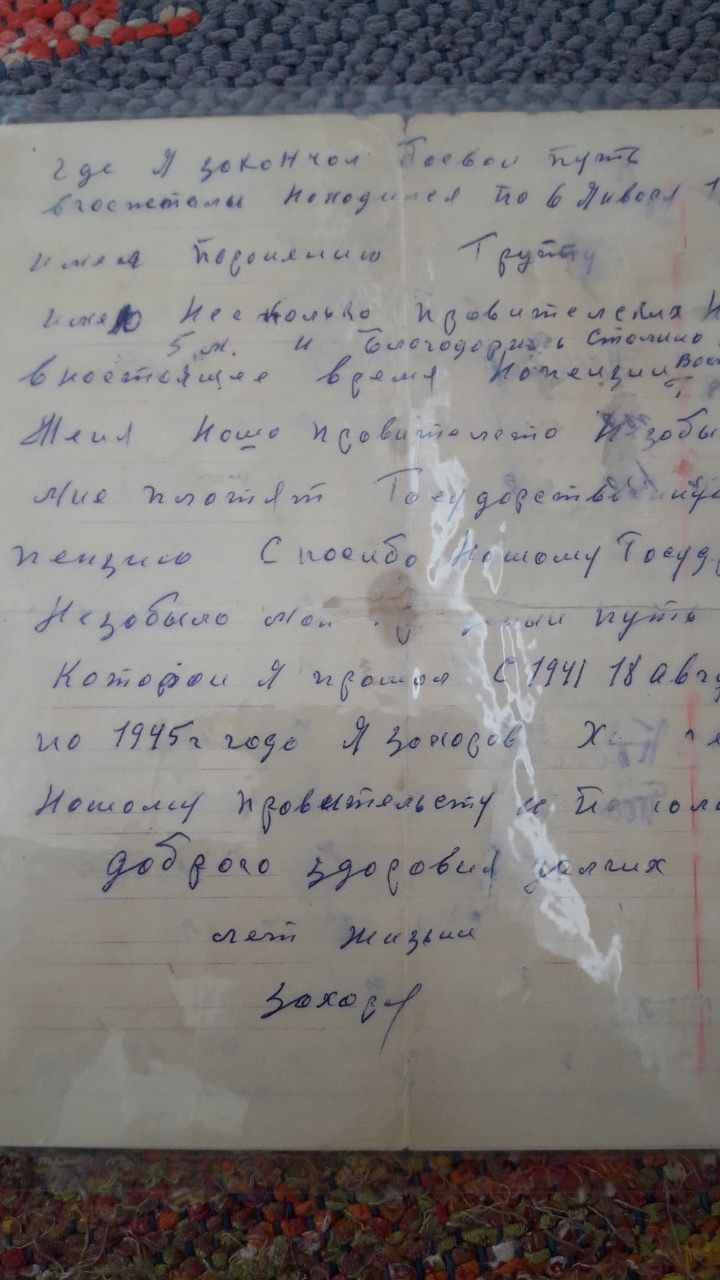 где Я закончал боевой путь
вгоспеталы находился по 6 Января 1
имея
имею Несколько правителских Н
5 м. и благодарнсь Сталина
внастоящее время Напензии
Меня Нашо правителство Незабы
Мне плотят Государство
пензию Спосибо Нашому Госуд
Незабыло мой путь
Которой Я прошол С 1941 18 Авгу
по 1945г года Я захаров
Нашому правительсту и
доброго здоровия долгих
лет жизьни
Захаров